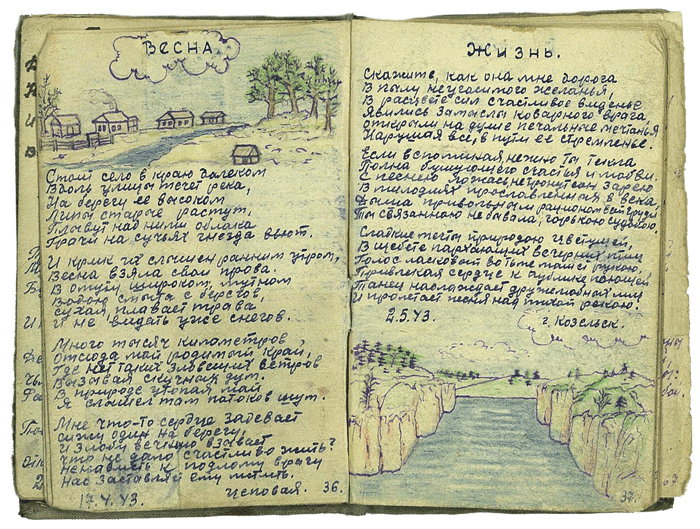 Весна
Стоит село в краю далеком
Вдоль улицы течет река,
На берегу ее высоком
Липы старые растут,
Плывут над ними облака
Грачи на сучьях гнезда вьют.
И крик их слышен ранним утром,
Весна взяла свои прова.
В отуги широком, мутном
Водою смыта с берегов,
сухая, плавает трава
И не видать уже снегов.
Много тысяч километров,
Отсюда мой родимый край,
Где нет таких зловещих ветров
Вызывая скучных дум.
В природе утопая май
Я слышел там патоков шум.
Мне что-то сердце задевает
сижу один на берегу,
И злобу вечную взывает
что не дано счастливо жить?
Ненависть к подлому врагу
Нас заставляет ему мстить.
17.4.43. Цеповая. 36.
Жизнь.
Скажите, как она мне дорога
В пылу неугасимого желанья,
В расцвете сил счастливое виденье
Явились замыслы коварного врага,
открыли на душе печальные мечтанья
Нарушая все, в пути ее стремленье.
Если вспоминая нежно ты текла
Полна бушующего счастья и любви.
С песнею ложась
В мелодиях прославленная в века
Дыша привольным
Ты связанною не бывала, горькою судьбою,
Сладкие мечты природою цветущей,
В щебете порхающих вечерних птиц
Голос ласковой во тьме
Привлекая сердце к публике поющей
Танец наслаждает дружелюбных лиц
И пролетает песня над тихой рекою.
2.5.43. г. Козельск.
37.